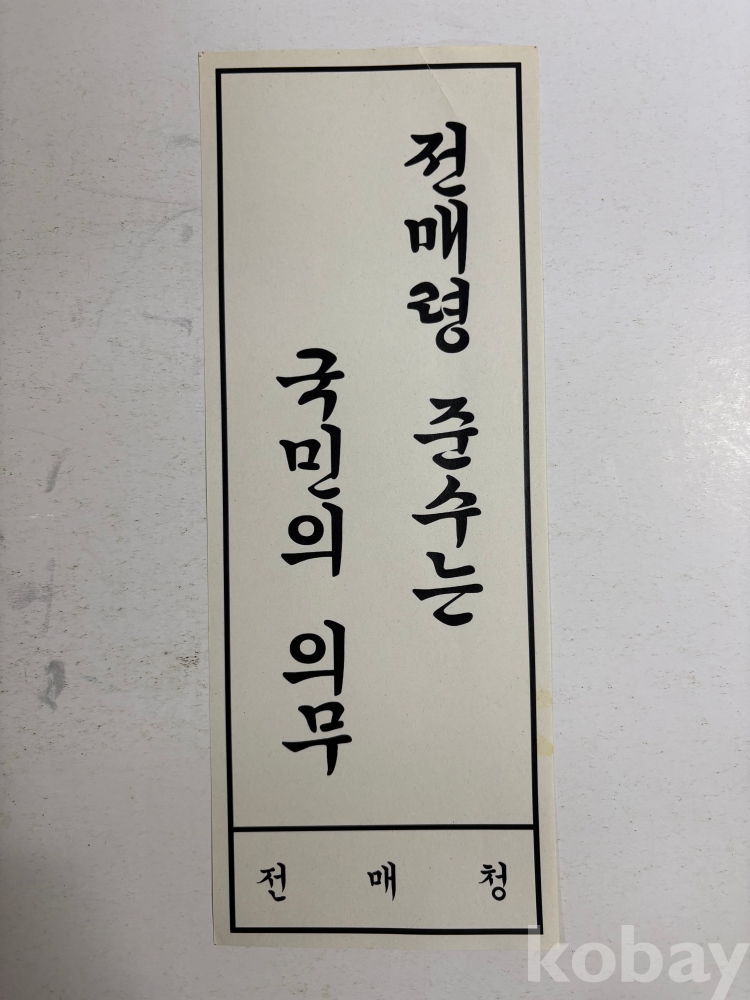 전매령 준수는
국민의 의무
전매청
kobay